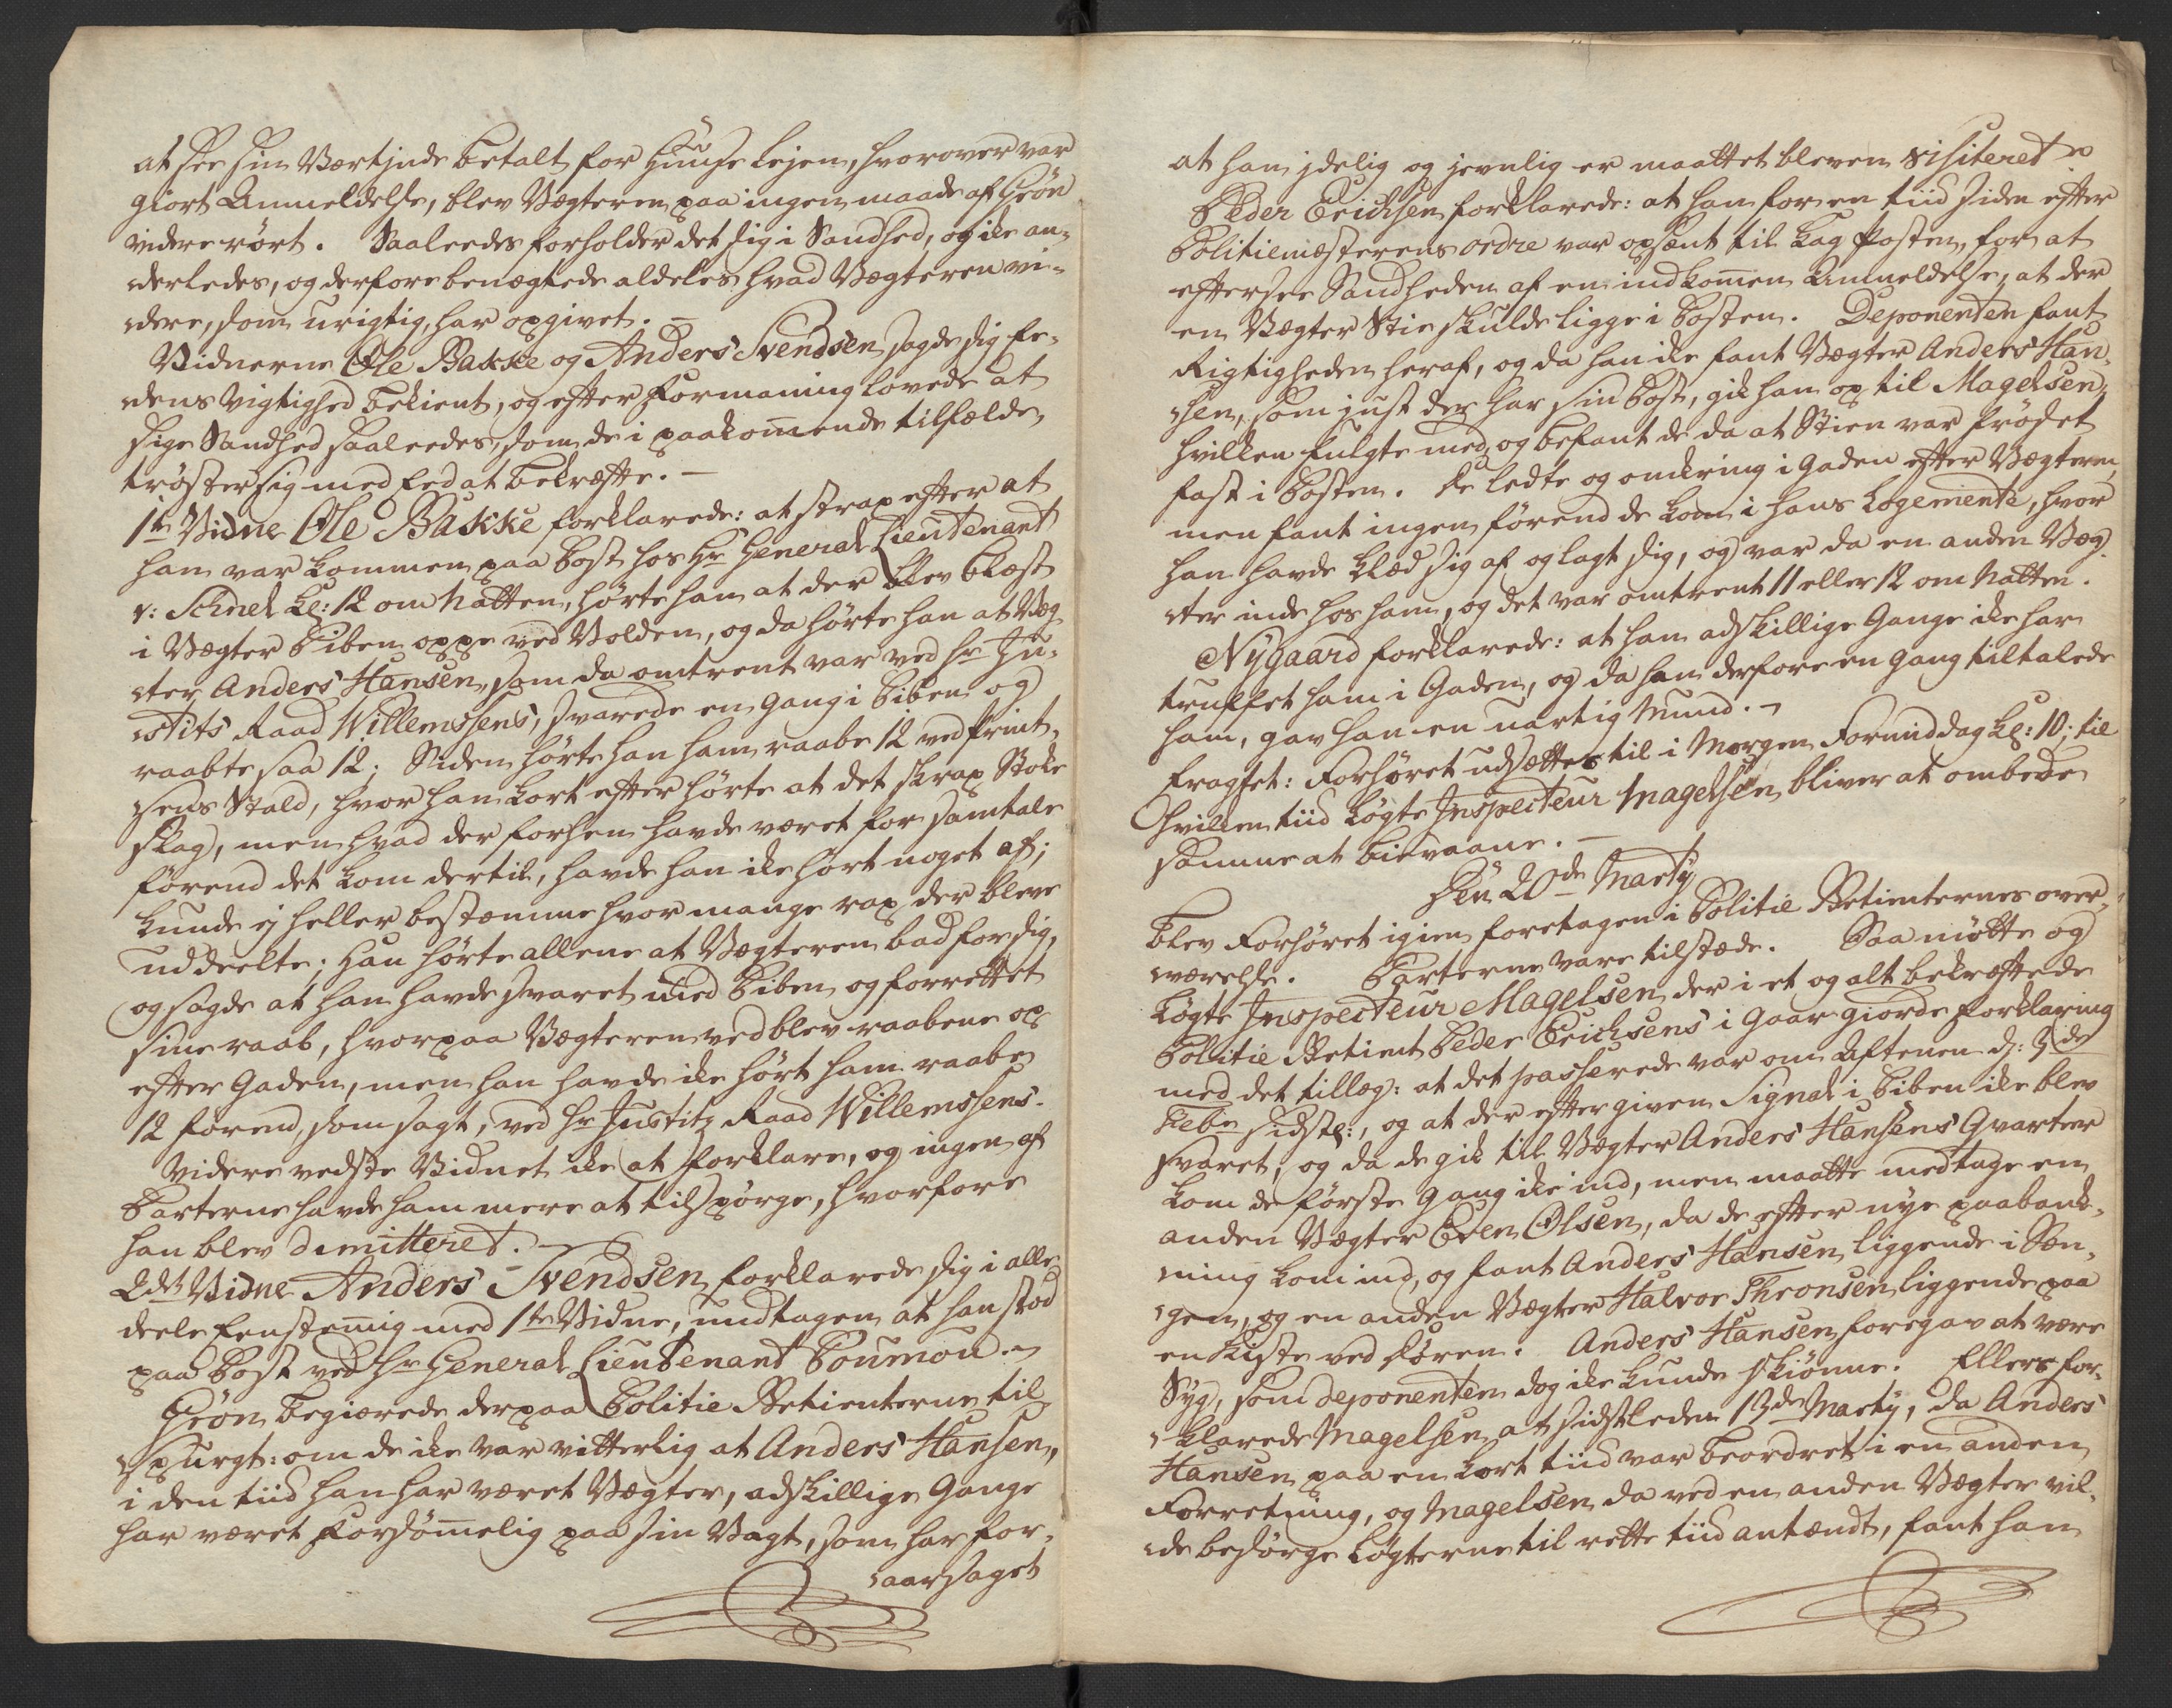 at see sin Værtinde betalt for Huuse Lejen, hvorover var
giort Anmeldelse, blev Vægteren paa ingen maade af Grøn
videre rørt. Saaleedes forholder det sig i Sandhed, og ike an-
derledes, og derfore benægtede aldeles hvad Vægteren vi-
dere, som urigtig, har opgivet. -
Vidnerne Ole Bakke og Anders Svendsen sagde sig Ee-
dens Vigtighed bekient, og efter Formaning lovede at
sige Sandhed saaleedes, som de i paakomende tilfælde
trøster sig med Eed at bekræfte. -
1te Vidne Ole Bakke forklarede: at strax efter at
han var kommen paa Post hos Hr General Lieutenant
v: Schnel Kl: 12 om Natten, hørte han at der blev blæst
i Vægter Piben oppe ved Volden, og da hørte han at Væg-
ter Anders Hansen, som da omtrent var ved Hr Ju-
stits Raad Willemssens, svarede en gang i Piben og
raabte saa 12; Siden hørte han ham raabe 12 ved Print-
sens Stald, hvor han kort efter hørte at det skrap Stoke
slag, men hvad der forhen havde været for samtale
førend det kom dertil, havde han ike hørt noget af;
kunde ej heller bestemme hvor mange rap der bleve
uddeelte; han hørte allene at Vægteren bad for sig,
og sagde at han havde svaret med Piben og forrettet
sine raab, hvorpaa Vægteren vedblev raabene op
efter Gaden, men han havde ike hørt ham raabe
12 førend, som sagt, ved Hr Justitz Raad Willemssens.
Videre vedste Vidnet ike at forklare, og ingen af
Parterne havde ham mere at tilspørge, hvorfore
han blev dimitteret. -
2det Vidne Anders Svendsen forklarede sig i alle
deele eenstemig med 1te Vidne, undtagen at han stod
paa Post ved Hr General Lieutenant Poumou -
Grøn begierede derpaa Politie Betienterne til-
spurgt: om de ike var vitterlig at Anders Hansen,
i den tiid han har været Vægter, adskillige Gange
har været forsømelig paa sin Vagt, som har for-
aarsaget
at han jdelig og jevnlig er maattet bleven visiteret
Peder Erichsen forklarede: at han for en tiid siden efter
Politiemesterens ordre var opsent til Lag Posten, for at
eftersee Sandheden af en indkomen Anmeldelse, at der
en Vægter Stie skulde ligge i Posten. Deponenten fant
Rigtigheden heraf, og da han ike fant Vægter Anders Han-
sen, som just der har sin Post, gik han op til Magelsen,
hvilken fulgte med, og befant de da at Stien var frøset
fast i Posten. De ledte og omkring i Gaden efter Vægteren,
men fant ingen førend de kom i hans Logemente, hvor
han havde klæd sig af og lagt sig, og var da en anden Væg-
ter inde hos ham, og det var omtrent 11 eller 12 om Natten.
Nygaard forklarede: at han adskillige Gange ike har
truffet ham i Gaden, og da han derfore en gang tiltalede
ham, gav han en uartig Mund. -
Eragtet: Forhøret udsættes til i Morgen Formiddag Kl: 10; til
hvilken tiid Løgte Inspecteur Magelsen bliver at ombede
samme at bievaane. -
Den 20de Marty
blev Forhøret igien foretagen i Politie Betienternes over-
værelse. Parterne vare tilstæde. Saa mødte og
Løgte Inspecteur Magelsen der i et og alt bekræftede
Politie Betient Peder Erichsens i Gaar giorde Forklaring
med det tillæg: at det passerede var om Aftenen d: 3de
Febr sidstl:, og at der efter given Signal i Piben ike blev
svaret, og da de gik til Vægter Anders Hansens Qvarter
kom de første gang ike ind, men maatte medtage en
anden Vægter Even Olsen, da de efter nye paabank-
ning kom ind, og fant Anders Hansen liggende i Sæn-
gen, og en anden Vægter Halvor Thronsen liggende paa
en Kiste ved Døren. Anders Hansen foregav at være
Syg, som deponenten dog ike kunde skiønne. Ellers for-
klarede Magelsen at sidstleden 13de Marty, da Anders
Hansen paa en kort tiid var beordret i en anden
Forretning, og Magelsen da ved en anden Vægter vil-
de besørge Løgterne til rette tiid antændt, fant han